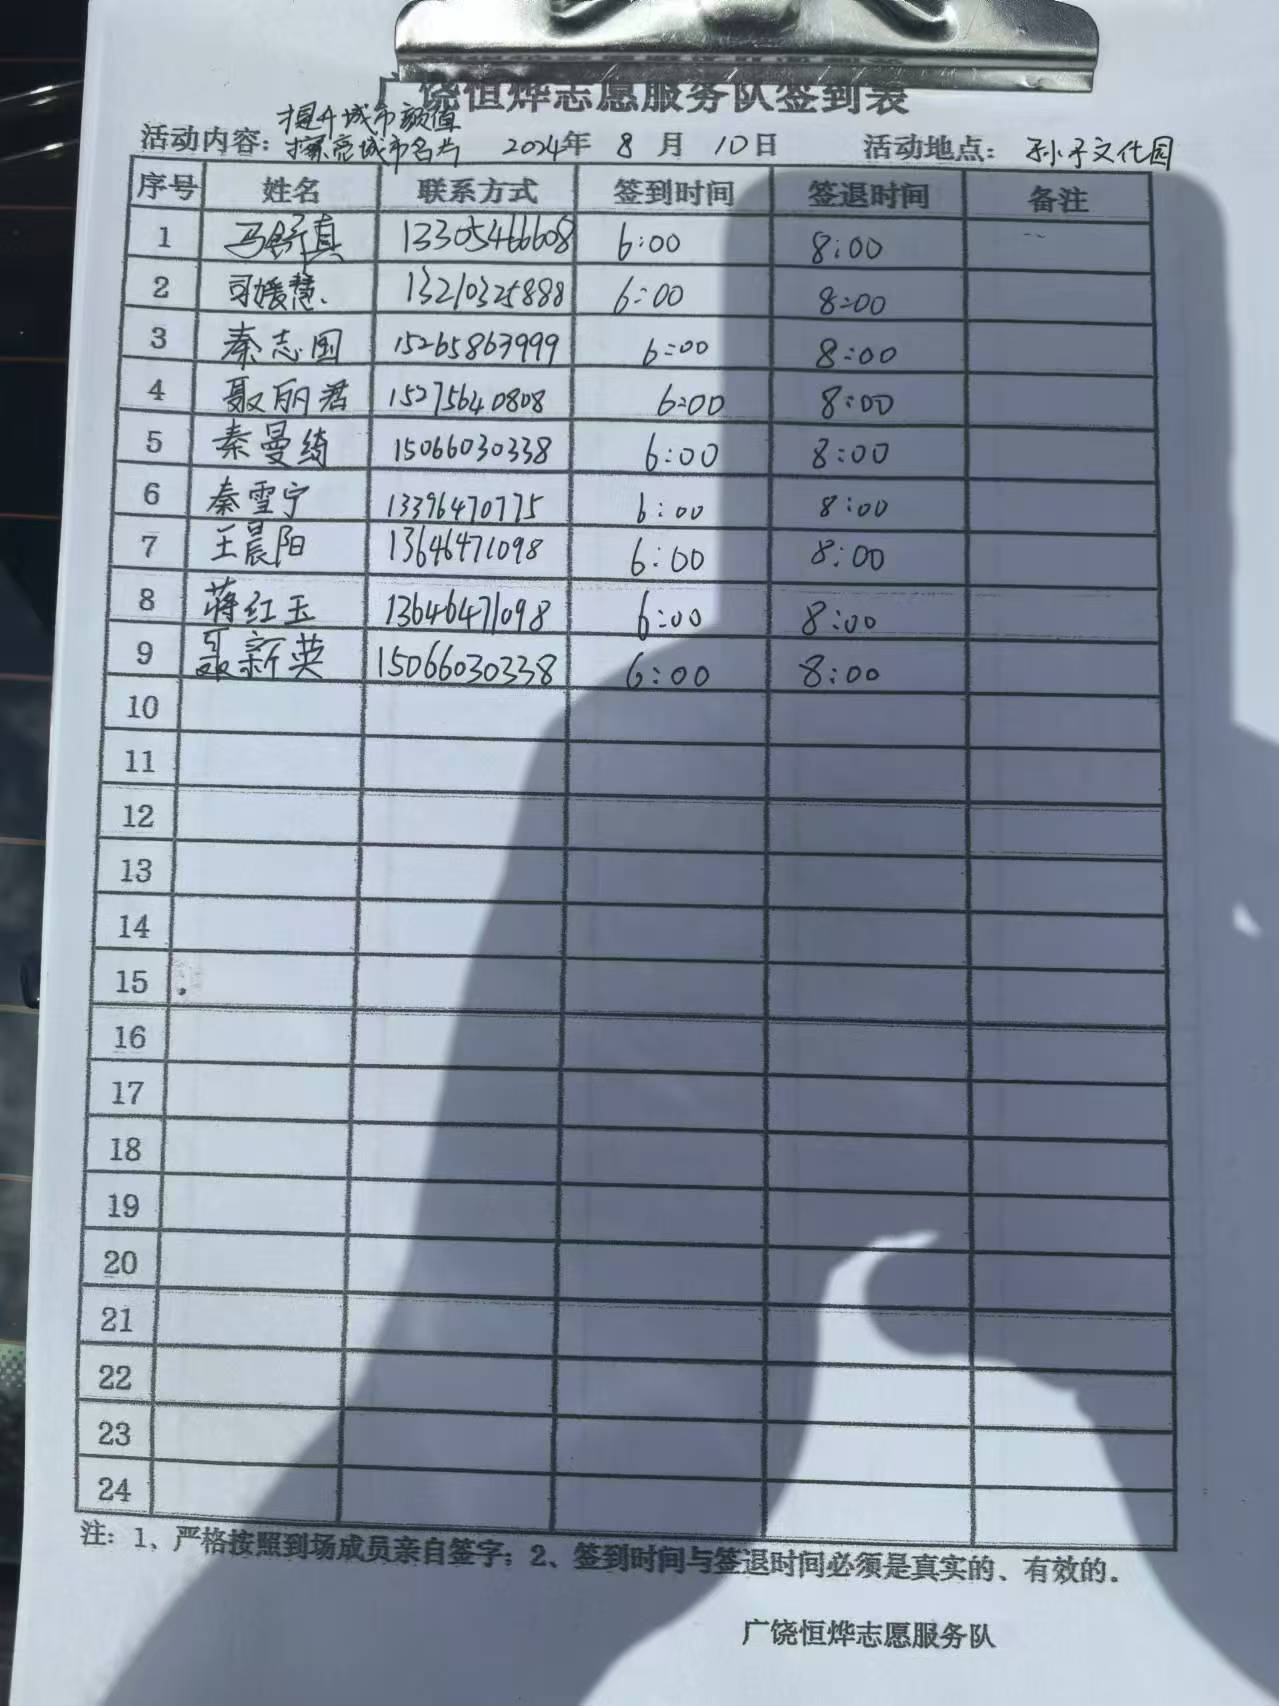 广饶恒烨志愿服务队签到表
提升城市颜值
活动内容: 擦亮城市名片 2024年 8 月 10日 活动地点: 孙子文化园
序号 姓名 联系方式 签到时间 签退时间 备注
1 马舒真 13305466608 6:00 8:00
2 司媛慧 13210325888 6:00 8:00
3 秦志国 15265863999 6:00 8:00
4 聂丽君 15275640808 6:00 8:00
5 秦曼绮 15066030338 6:00 8:00
6 秦雪宁 13396470775 6:00 8:00
7 王晨阳 13646471098 6:00 8:00
8 蒋红玉 13646471098 6:00 8:00
9 聂新英 15066030338 6:00 8:00
10
11
12
13
14
15
16
17
18
19
20
21
22
23
24
注: 1、严格按照到场成员亲自签字; 2、签到时间与签退时间必须是真实的、有效的。
广饶恒烨志愿服务队